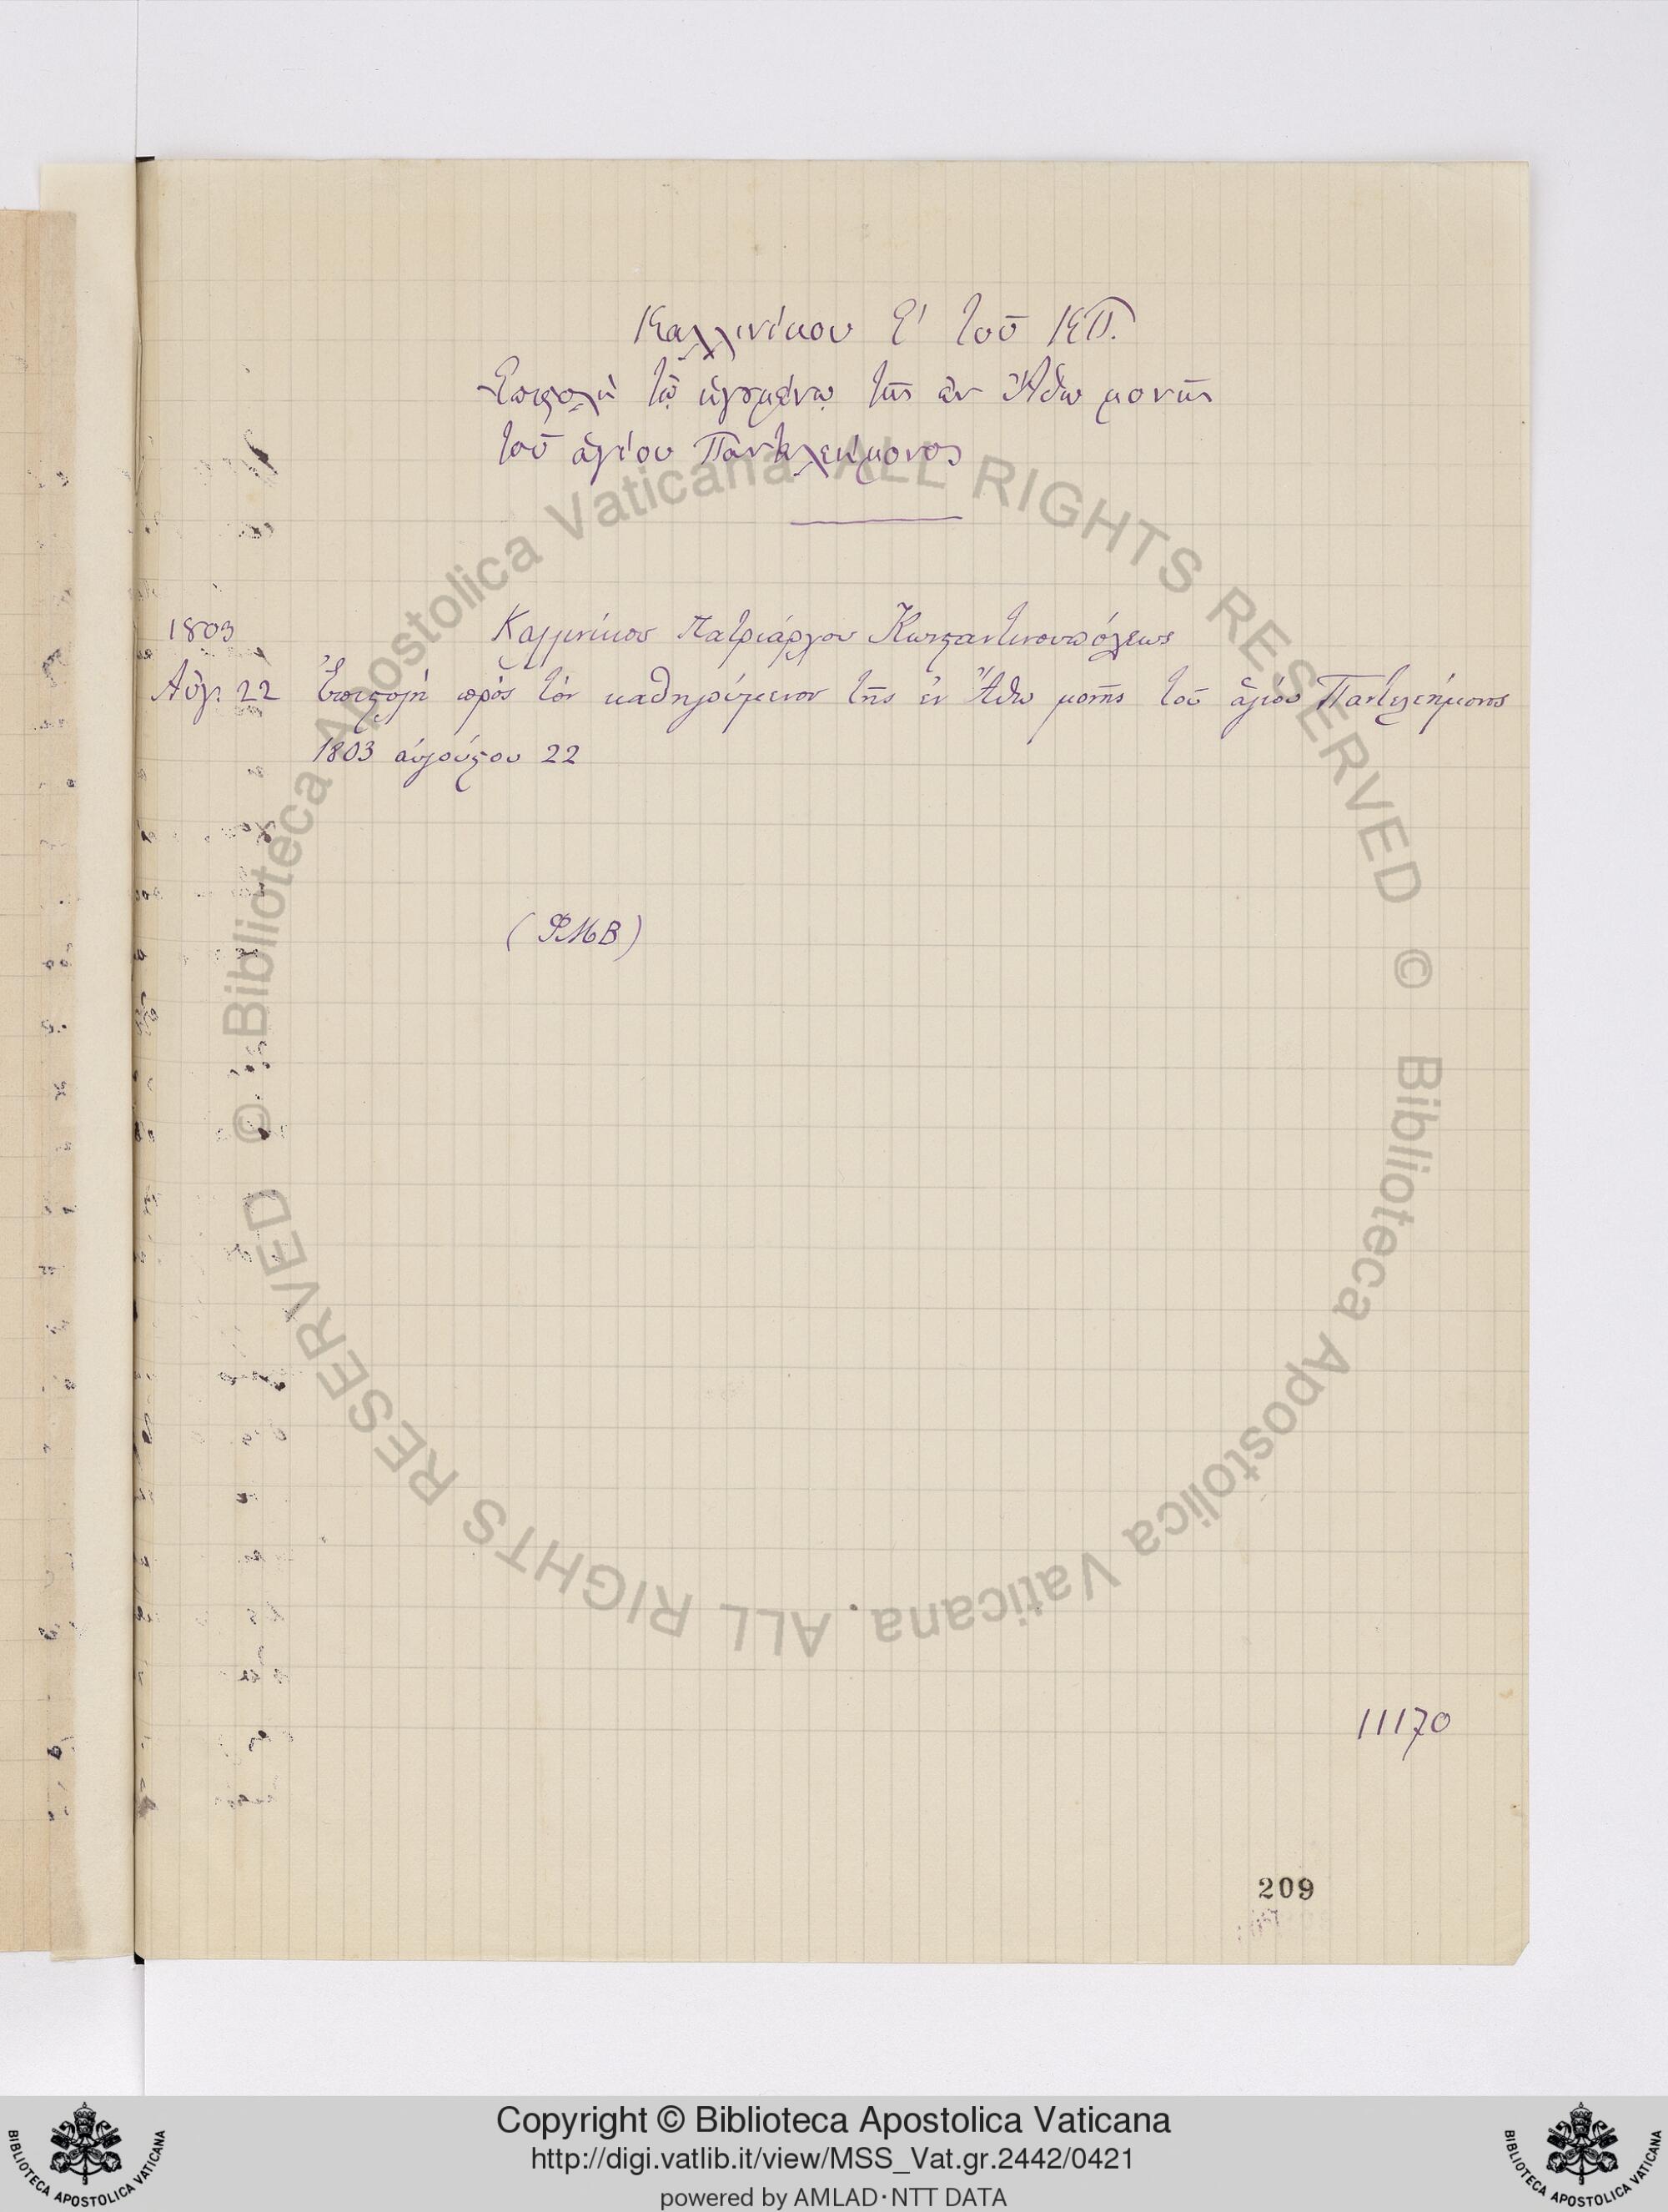 Καλλινίκου Ε' τοῦ ΚΠ.
Ἐπιστολὴ τῷ ἡγουμένῳ τῆς ἐν Ἄθω μονῆς
τοῦ ἁγίου Παντελεήμονος
1803 Καλλινίκου Πατριάρχου Κωνσταντινουπόλεως
Αὐγ. 22 Ἐπιστολὴ πρὸς τὸν καθηγούμενον τῆς ἐν Ἄθω μονῆς τοῦ ἁγίου Παντελεήμονος
1803 αὐγούστου 22
11170
209
© Biblioteca Apostolica Vaticana ALL RIGHTS RESERVED © Biblioteca Apostolica Vaticana. ALL RIGHTS RESERVED
Copyright © Biblioteca Apostolica Vaticana
http://digi.vatlib.it/view/MSS_Vat.gr.2442/0421
powered by AMLAD·NTT DATA
BIBLIOTECA APOSTOLICA VATICANA
BIBLIOTECA APOSTOLICA VATICANA